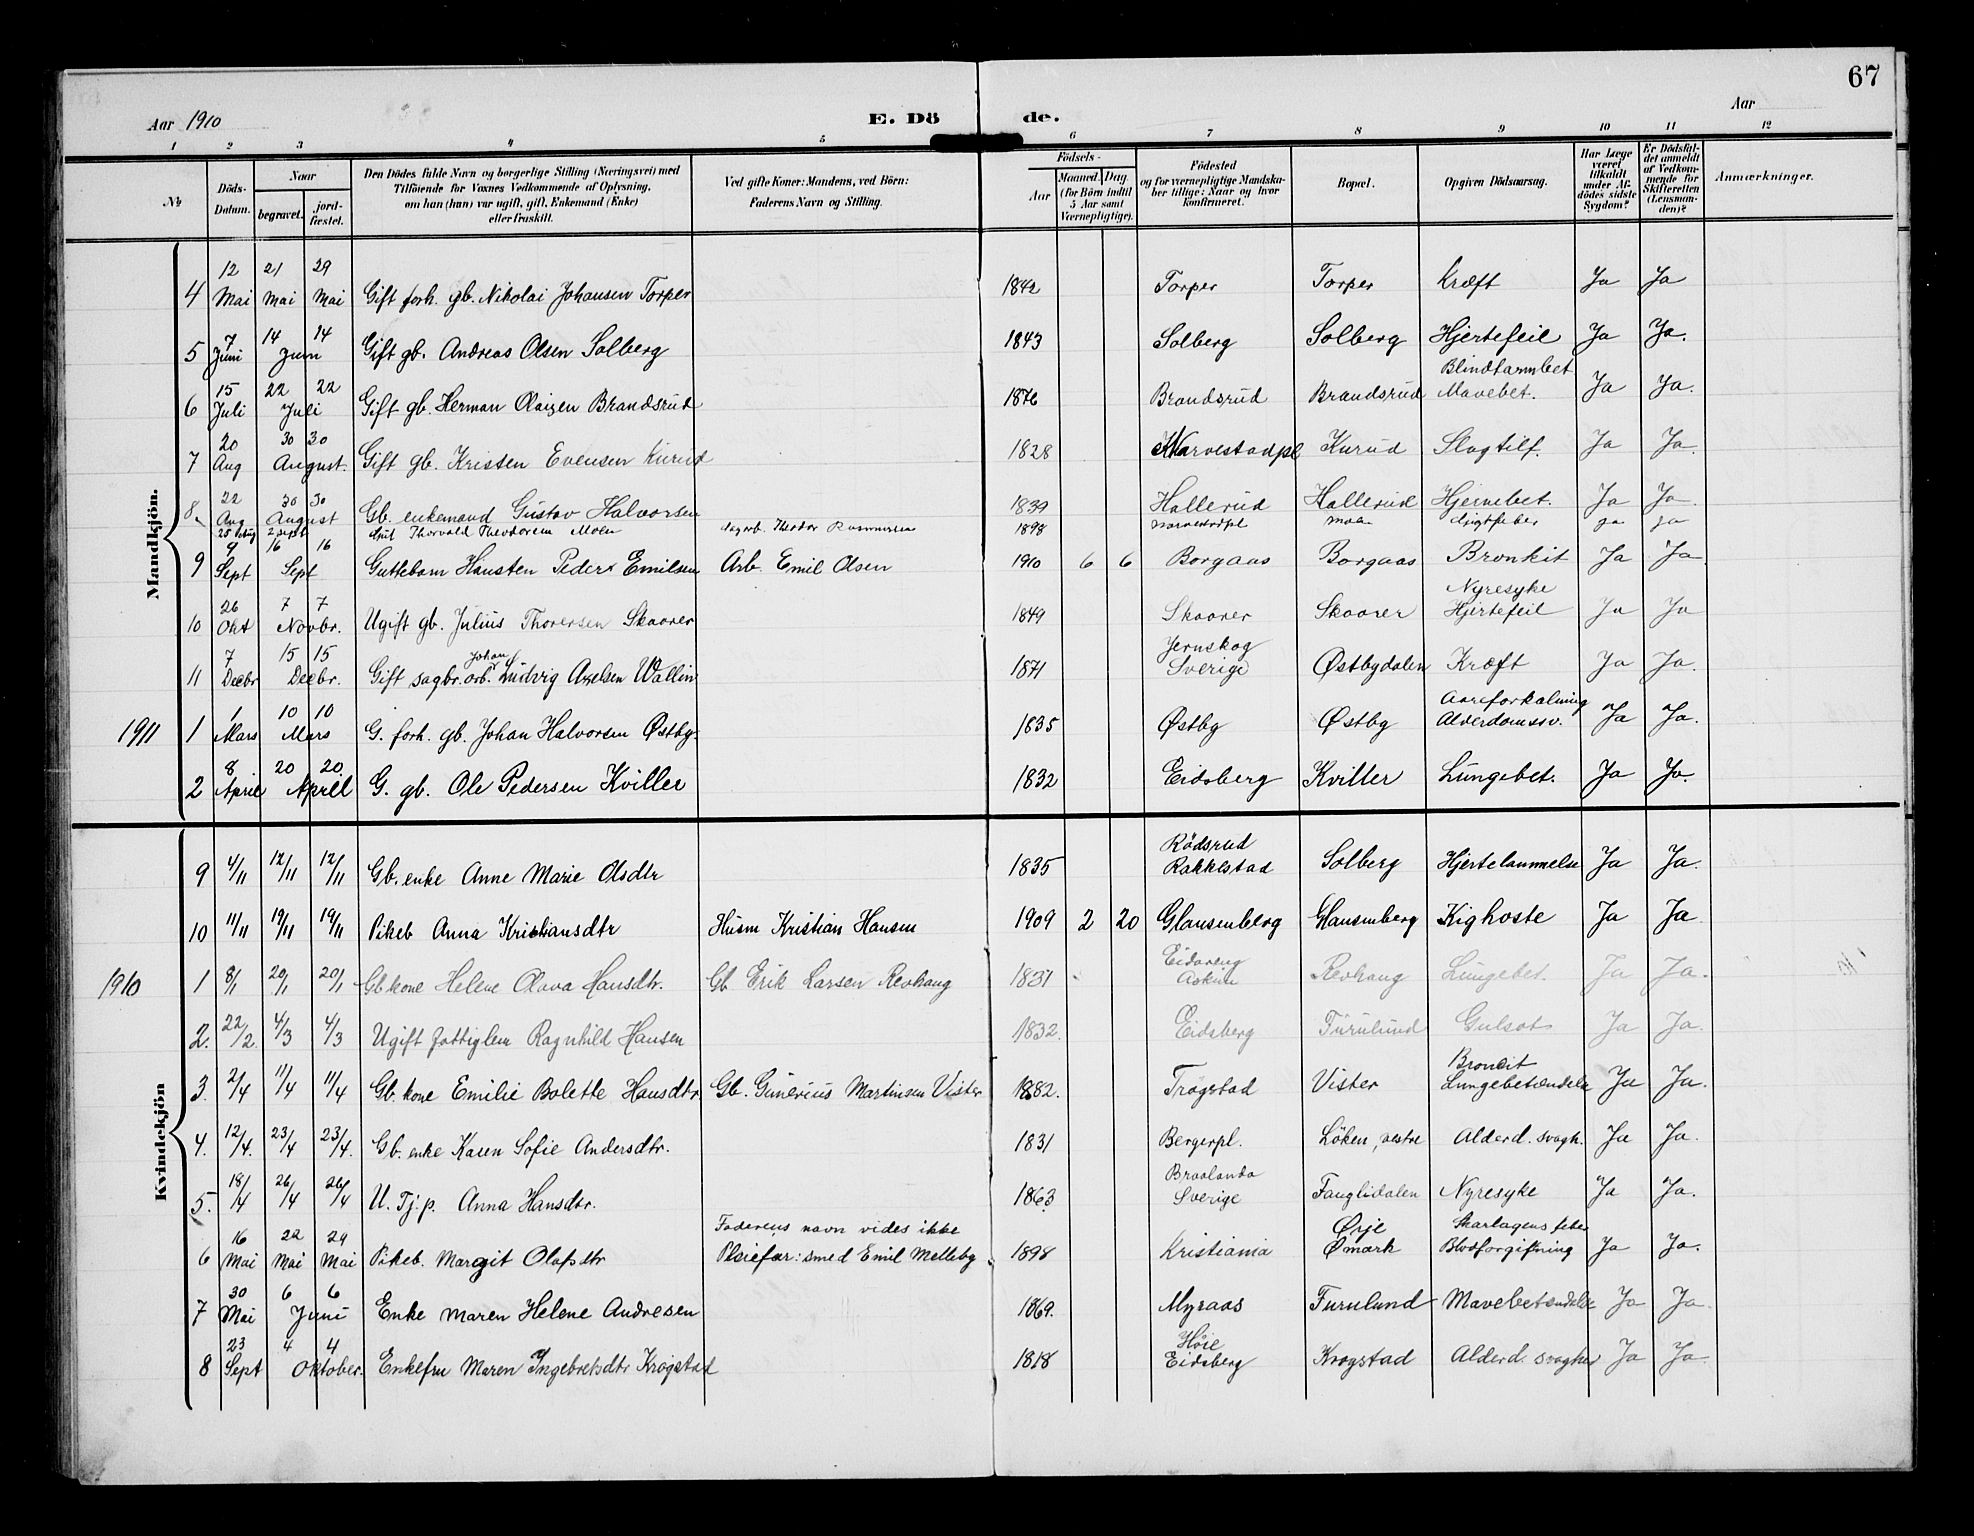 67
Aar 1910 E. Dö de. Aar
1 2 3 4 5 6 7 8 9 10 11 12
No
Döds-Datum.
Naar
begravet.
jord-fæstet.
Den Dödes fulde Navn og borgerlige Stilling (Næringsvei) med
Tilföiende for Voxnes Vedkommende af Oplysning,
om han (hun) var ugift, gift, Enkemand (Enke)
eller fraskilt.
Ved gifte Koner: Mandens, ved Börn:
Faderens Navn og Stilling.
Födsels-
Aar
Maaned. Dag.
(for Börn indtil
5 Aar samt
Værnepligtige).
Födested
og for værnepligtige Mandska-
ber tillige: Naar og hvor
konfirmeret.
Bopæl.
Opgiven Dödsaarsag.
Har Læge
været
tilkaldt
under Af-
dödes sidste
Sygdom?
Er Dödsfal-
det anmeldt
af Vedkom-
mende for
Skifteretten
(Lensman-
den)?
Anmærkninger.
Mandkjön.
12 21 29
4 Mai Mai Mai Gift forh. gb. Nikolai Johansen Torper 1842 Torper Torper Kræft Ja Ja
7 14 14
5 Juni Juni Gift gb. Andreas Olsen Solberg 1843 Solberg Solberg Hjertefeil Ja Ja.
15 22 22 Blindtarmbet
6 Juli Juli Gift gb. Herman Olaisen Brandsrud 1876 Brandsrud Brandsrud Mavebet. Ja Ja.
20 30 30
7 Aug August. Gift gb. Kristen Evensen Kurud 1828 Narvestadpl Kurud Slagtilf. Ja Ja.
22 30 30
8 Aug August Gb. enkemand Gustav Halvorsen 1839 Hallerud Hallerud Hjernebet. Ja Ja
2 Sept Thorvald Theodorsen Moen Theodor Rasmussen 1898 Narvestadpl Moen Ja Ja
9 16 16
9 Sept Sept Guttebarn Hansten Peder Emilsen Arb. Emil Olsen 1910 6 6 Borgaas Borgaas Bronkit Ja Ja
26 7 7 Nyresyke
10 Okt Novbr. Ugift gb. Julius Thoresen Skaarer 1849 Skaarer Skaarer Hjertefeil Ja Ja
7 15 15 Johan Jernskog
11 Decbr Decbr. Gift sagbr. arb. Ludvig Axelsen Wallin 1871 Sverige Østbydalen Kræft Ja Ja.
1 10 10 Aareforkalkning
1911 1 Mars Mars G. forh. gb. Johan Halvorsen Østby. 1835 Østby Østby Alderdomssv. Ja Ja.
8 20 20
2 April April G. gb. Ole Pedersen Kviller 1832 Eidsberg Kviller Lungebet. Ja Ja.
Kvindekjön
Rödsrud
9 4/11 12/11 12/11 Gb. enke Anne Marie Olsdtr 1835 Rakkestad Solberg Hjertelammelse Ja Ja.
10 11/11 19/11 19/11 Pikeb Anna Kristiansdtr Husm Kristian Hansen 1909 2 20 Glansenberg Glansenberg Kighoste Ja Ja
1910 1 8/1 20/1 20/1 Gb kone Helene Olava Hansdtr. Gb Erik Larsen Revhaug 1831 Askim Revhaug Lungebet. Ja Ja.
2. 22/2. 4/3 4/3 Ugift fattiglem Ragnhild Hansen 1832. Eidsberg Furulund Gulsot Ja Ja.
3. 2/4 11/4 11/4 Gb. kone Emilie Bolette Hansdtr Gb. Gunerius Martinsen Vister 1882. Trøgstad Vister Lungebetændelse Ja Ja.
4. 12/4. 23/4 23/4. Gb. enke Karen Sofie Andersdtr. 1831 Bergerpl. Löken, vestre Alderd. svagh. Ja Ja.
5. 18/4 26/4 26/4 U. Tj. p. Anna Hansdtr. 1863 Sverige Nyresyke Ja Ja.
16 22 29 Faderens navn vides ikke Ørje Skarlagensfeber
6 Mai Mai Mai Pikeb. Margit Olafsdtr Pleiefar: smed Emil Melleby 1898 Kristiania Ømark Blodforgiftning Ja Ja.
30 6 6
7 Mai Juni Enke Maren Helene Andresen 1869. Myraas Furulund Mavebetændelse Ja Ja.
23 4 4 Höie
8 Sept Oktober. Enkefru Maren Ingebretsdtr Krogstad 1818 Eidsberg Krogstad Alderd. svaghed Ja Ja.